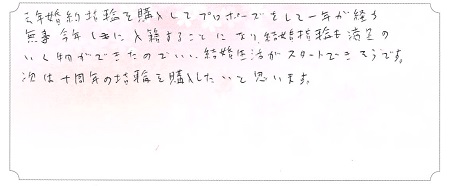 去年婚約指輪を購入してプロポーズをして一年が経ち
無事今年 に入籍することになり結婚指輪も満足の
いく物ができたのでいい結婚生活がスタートできそうです。
次は十周年の指輪を購入したいと思います。